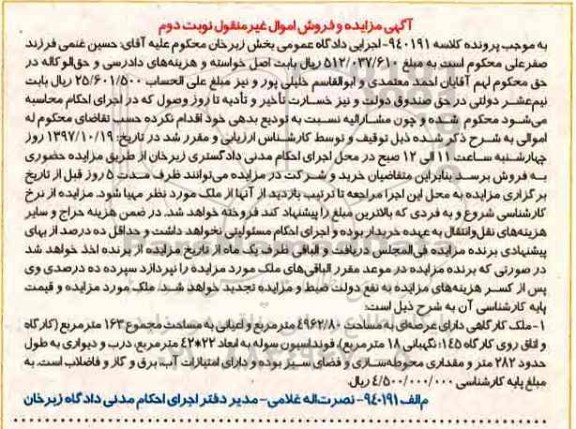 آگهی مزایده و فروش اموال غیر منقول نوبت دوم
به موجب پرونده کلاسه ۹۴۰۱۹۱-اجرایی دادگاه عمومی بخش زبرخان محکوم علیه آقای: حسین غنمی فرزند
صفرعلی محکوم است به مبلغ ۵۱۲/۰۳۷/۶۱۰ ریال بابت اصل خواسته و هزینه‌های دادرسی و حق‌الوکاله در
حق محکوم لهم آقایان احمد معتمدی و ابوالقاسم خلیلی پور و نیز مبلغ علی الحساب ۲۵/۶۰۱/۵۰۰ ریال بابت
نیم‌عشر دولتی در حق صندوق دولت و نیز خسارت تأخیر و تأدیه تا روز وصول که در اجرای احکام محاسبه
می‌شود محکوم شده و چون مشارالیه نسبت به تودیع بدهی خود اقدام نکرده حسب تقاضای محکوم له
اموالی به شرح ذکر شده ذیل توقیف و توسط کارشناس ارزیابی و مقرر شد در تاریخ: ۱۳۹۷/۱۰/۱۹ روز
چهارشنبه ساعت ۱۱ الی ۱۲ صبح در محل اجرای احکام مدنی دادگستری زبرخان از طریق مزایده حضوری
به فروش برسد بنابراین متقاضیان خرید و شرکت در مزایده می‌توانند ظرف مدت ۵ روز قبل از تاریخ
برگزاری مزایده به محل این اجرا مراجعه تا ترتیب بازدید از آنها از ملک مورد نظر مهیا شود. مزایده از نرخ
کارشناسی شروع و به فردی که بالاترین مبلغ را پیشنهاد کند فروخته خواهد شد. در ضمن هزینه حراج و سایر
هزینه‌های نقل‌وانتقال به عهده خریدار بوده و اجرای احکام مسئولیتی نخواهد داشت و حداقل ده درصد از بهای
پیشنهادی برنده مزایده فی‌المجلس دریافت و الباقی ظرف یک ماه از تاریخ مزایده از برنده اخذ خواهد شد
در صورتی که برنده مزایده در موعد مقرر الباقی‌های ملک مورد مزایده را نپردازد سپرده ده درصدی وی
پس از کسر هزینه‌های مزایده به نفع دولت ضبط و مزایده تجدید خواهد شد. ملک مورد مزایده و قیمت
پایه کارشناسی آن به شرح ذیل است:
۱-ملک کارگاهی دارای عرصه‌ای به مساحت ۴۹۶۲/۸۰ مترمربع و اعیانی به مساحت مجموع ۱۶۳ مترمربع (کارگاه
و اتاق روی کارگاه ۱۴۵؛ نگهبانی ۱۸ مترمربع)، فونداسیون سوله به ابعاد ۲۲*۴۲ مترمربع، درب و دیواری به طول
حدود ۲۸۲ متر و مقداری محوطه‌سازی و فضای سبز بوده و دارای امتیازات آب، برق و گاز و فاضلاب است. به
مبلغ پایه کارشناسی ۴/۵۰۰/۰۰۰/۰۰۰ ریال.
م‌الف ۹۴۰۱۹۱- نصرت‌اله غلامی- مدیر دفتر اجرای احکام مدنی دادگاه زبرخان